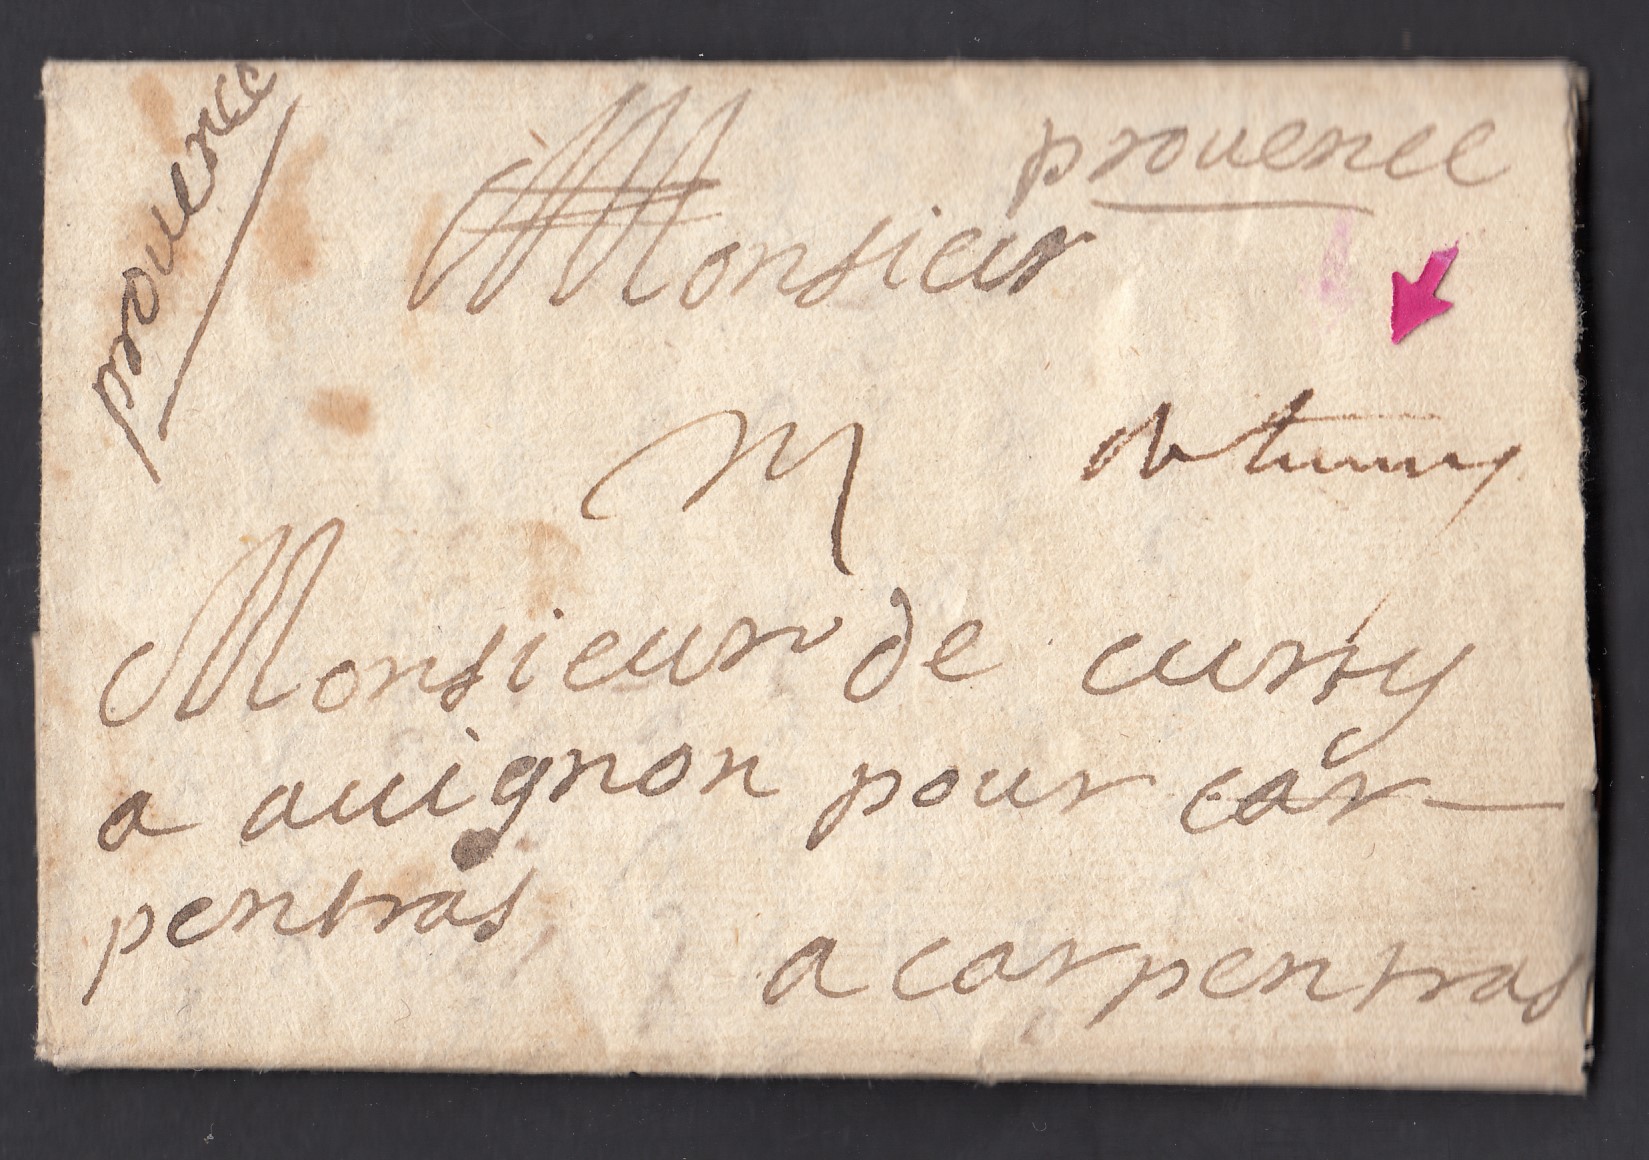 provence
prouence
Monsieur
M
Monsieur de curry
a auignon pour car-
pentras
a carpentras